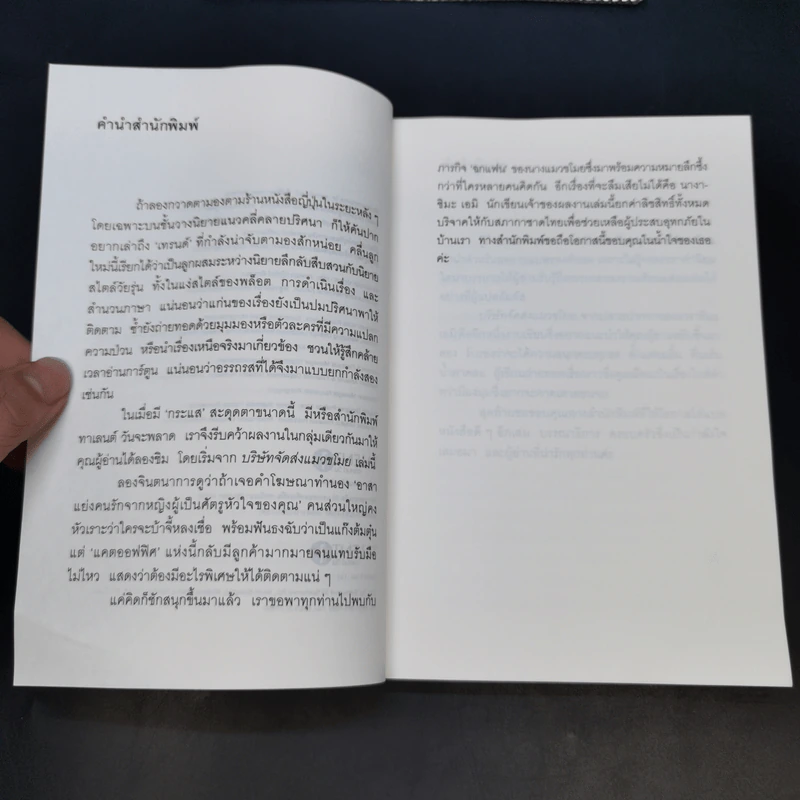 คำนำสำนักพิมพ์
ถ้าลองกวาดตามองตามร้านหนังสือญี่ปุ่นในระยะหลัง ๆ
โดยเฉพาะบนชั้นวางนิยายแนวคลี่คลายปริศนา ก็ให้คันปาก
อยากเล่าถึง ‘เทรนด์’ ที่กำลังน่าจับตามองสักหน่อย คลื่นลูก
ใหม่นี้เรียกได้ว่าเป็นลูกผสมระหว่างนิยายลึกลับสืบสวนกับนิยาย
สไตล์วัยรุ่น ทั้งในแง่สไตล์ของพล็อต การดำเนินเรื่อง และ
สำนวนภาษา แน่นอนว่าแก่นของเรื่องยังเป็นปมปริศนาพาให้
ติดตาม ซ้ำยังถ่ายทอดด้วยมุมมองหรือตัวละครที่มีความแปลก
ความป่วน หรือนำเรื่องเหนือจริงมาเกี่ยวข้อง ชวนให้รู้สึกคล้าย
เวลาอ่านการ์ตูน แน่นอนว่าอรรถรสที่ได้จึงมาแบบยกกำลังสอง
เช่นกัน
ในเมื่อมี ‘กระแส’ สะดุดตาขนาดนี้ มีหรือสำนักพิมพ์
ทาเลนต์ วันจะพลาด เราจึงรีบคว้าผลงานในกลุ่มเดียวกันมาให้
คุณผู้อ่านได้ลองชิม โดยเริ่มจาก บริษัทจัดส่งแมวขโมย เล่มนี้
ลองจินตนาการดูว่าถ้าเจอคำโฆษณาทำนอง ‘อาสา
แย่งคนรักจากหญิงผู้เป็นศัตรูหัวใจของคุณ’ คนส่วนใหญ่คง
หัวเราะว่าใครจะบ้าจี้หลงเชื่อ พร้อมฟันธงฉับว่าเป็นแก๊งต้มตุ๋น
แต่ ‘แคตออฟฟิศ’ แห่งนี้กลับมีลูกค้ามากมายจนแทบรับมือ
ไม่ไหว แสดงว่าต้องมีอะไรพิเศษให้ได้ติดตามแน่ ๆ
แค่คิดก็ชักสนุกขึ้นมาแล้ว เราขอพาทุกท่านไปพบกับ
ภารกิจ ‘ฉกแฟน’ ของนางแมวขโมยซึ่งมาพร้อมความหมายลึกซึ้ง
กว่าที่ใครหลายคนคิดกัน อีกเรื่องที่จะลืมเสียไม่ได้คือ นางา-
ชิมะ เอมิ นักเขียนเจ้าของผลงานเล่มนี้ยกค่าลิขสิทธิ์ทั้งหมด
บริจาคให้กับสภากาชาดไทยเพื่อช่วยเหลือผู้ประสบอุทกภัยใน
บ้านเรา ทางสำนักพิมพ์ขอถือโอกาสนี้ขอบคุณในน้ำใจของเธอ
ค่ะ